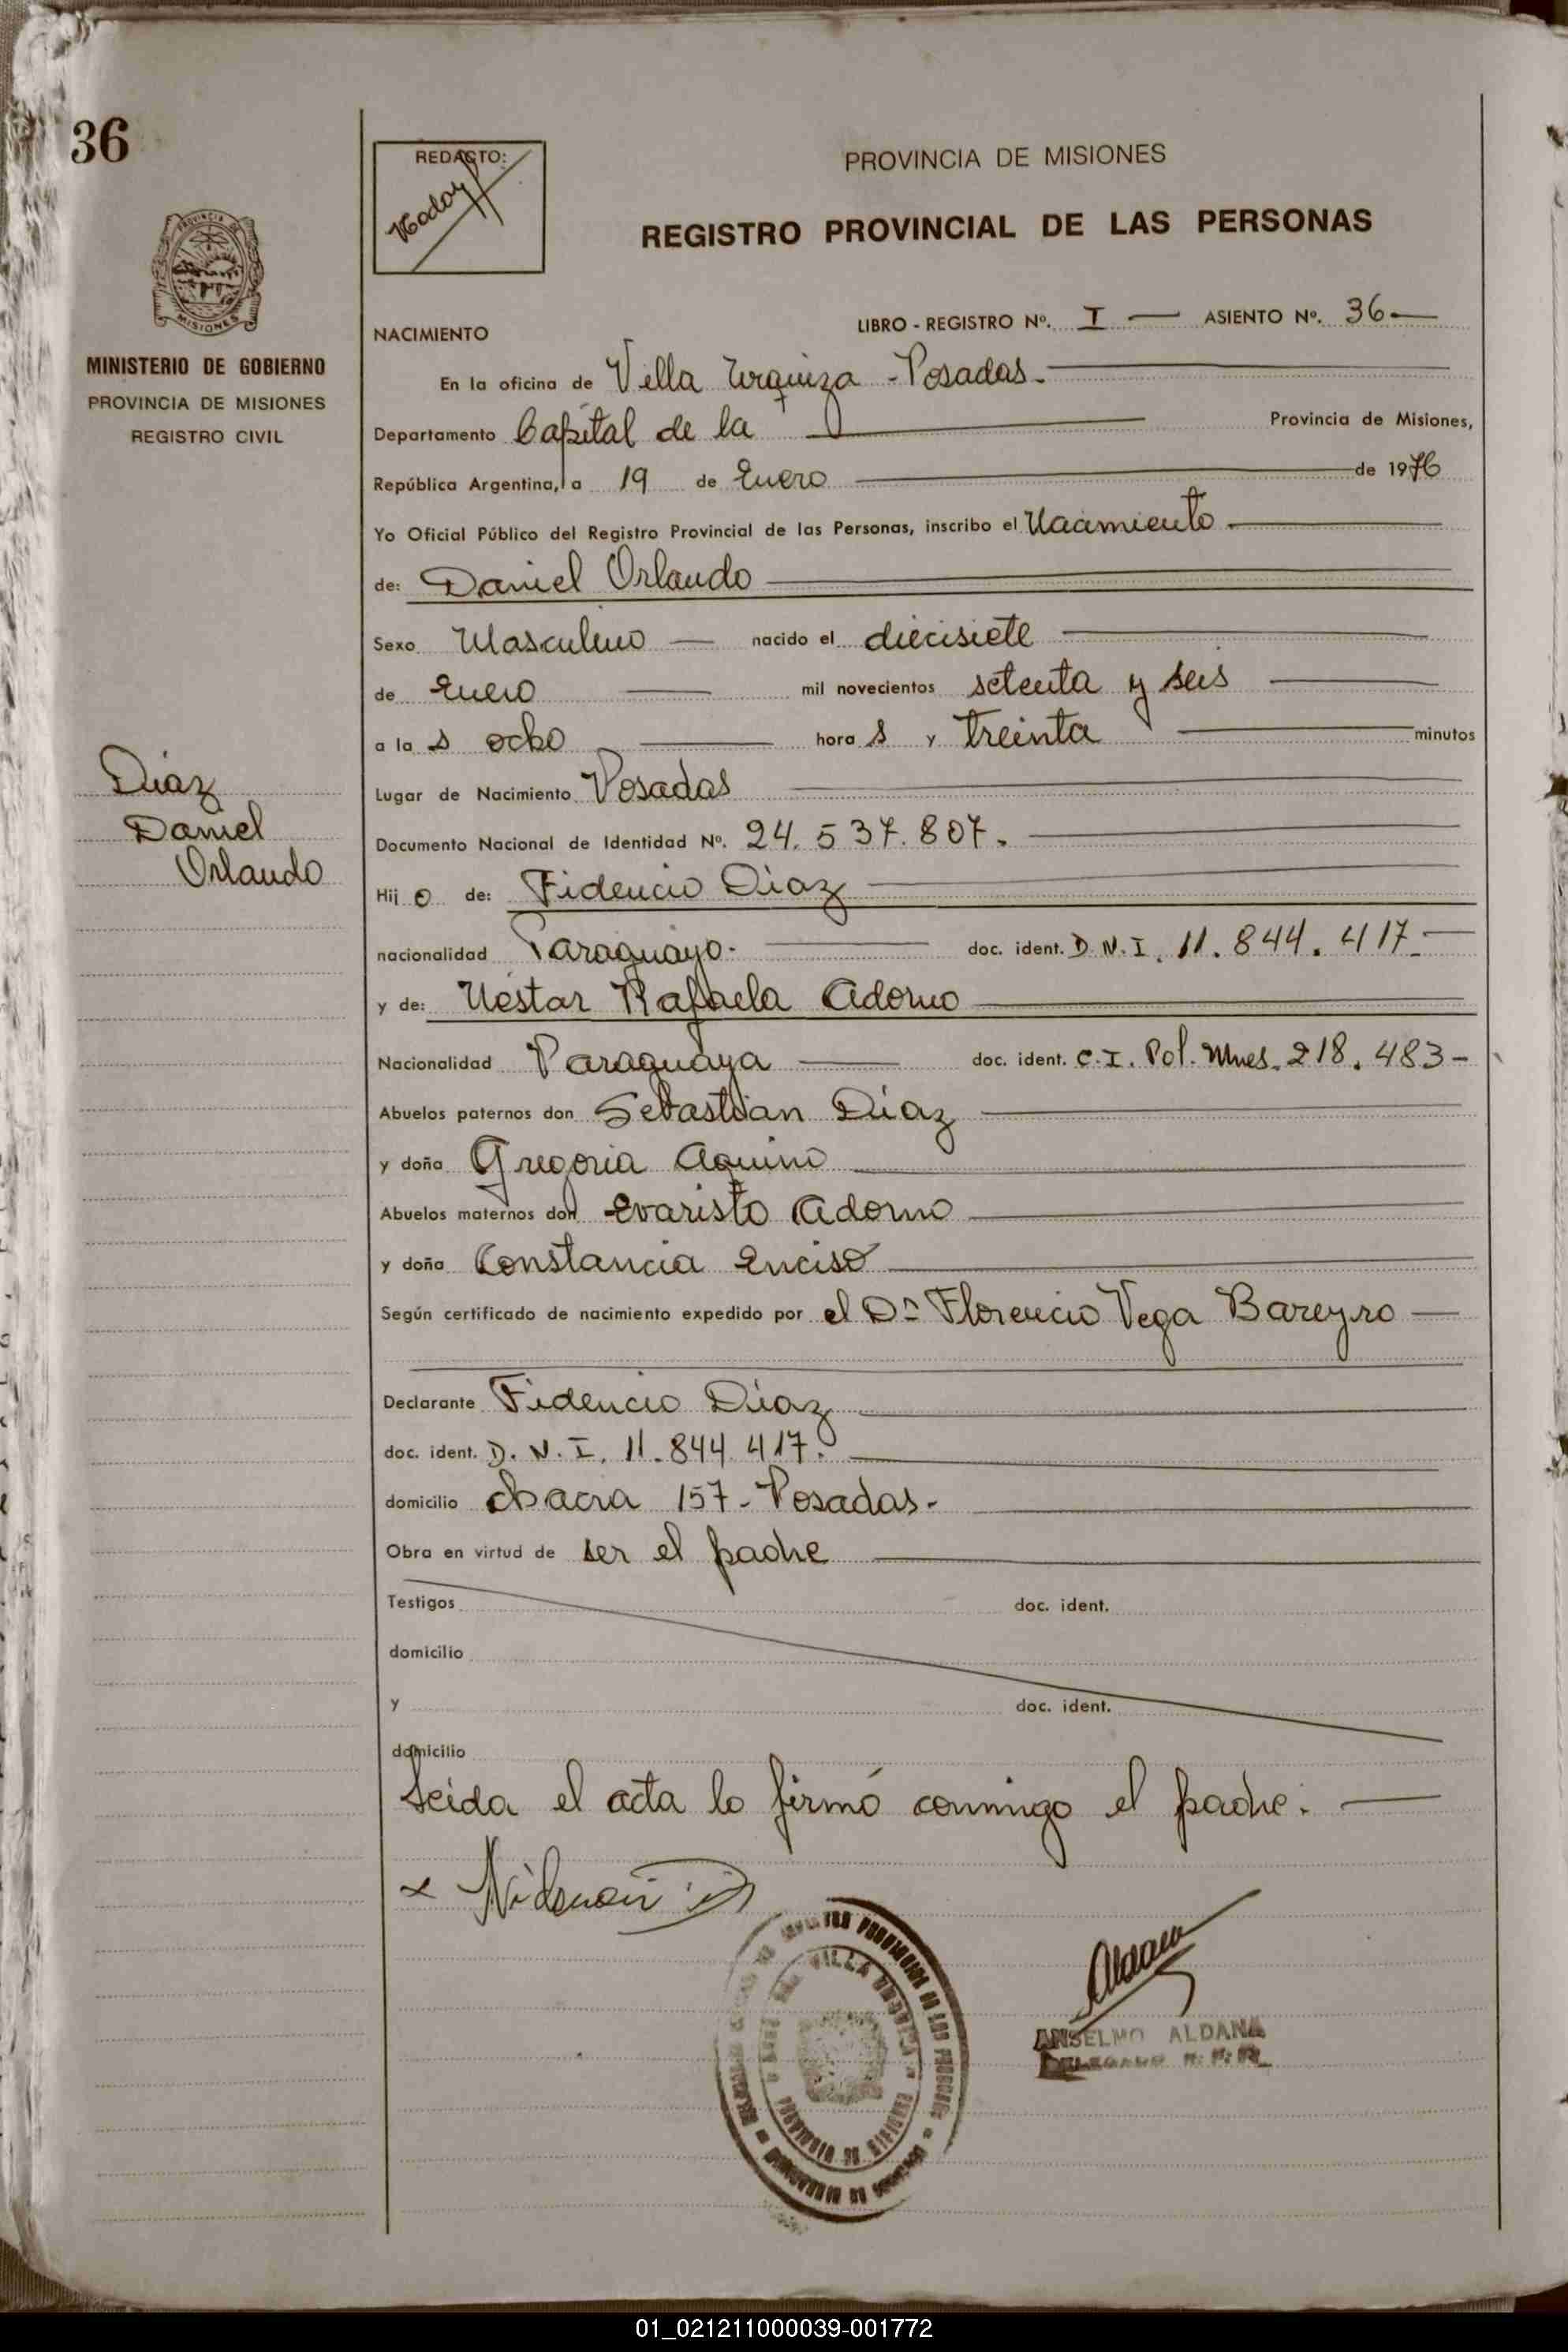 36
REDACTO:
PROVINCIA DE MISIONES
REGISTRO PROVINCIAL DE LAS PERSONAS
MISIONES
MINISTERIO DE GOBIERNO
PROVINCIA DE MISIONES
REGISTRO CIVIL
NACIMIENTO
LIBRO - REGISTRO Nº. I — ASIENTO Nº. 36 —
En la oficina de Villa Urquiza - Posadas.
Departamento Capital de la Provincia de Misiones,
República Argentina, a 19 de Enero de 1976
Yo Oficial Público del Registro Provincial de las Personas, inscribo el Nacimiento
de: Daniel Orlando
Sexo Masculino — nacido el diecisiete
de Enero mil novecientos setenta y seis
a la s ocho hora s y treinta minutos
Lugar de Nacimiento Posadas
Documento Nacional de Identidad Nº. 24.537.807.
Hij o de: Fidencio Díaz
nacionalidad Paraguayo. doc. ident. D.N.I. 11.844.417.
y de: Néstar Rafaela Adorno
Nacionalidad Paraguaya doc. ident. C.I. Pol. Mnes. 218.483 -
Abuelos paternos don Sebastian Díaz
y doña Gregoria Aquino
Abuelos maternos don Evaristo Adorno
y doña Constancia Enciso
Según certificado de nacimiento expedido por el Dr. Florencio Vega Bareyro
Declarante Fidencio Díaz
doc. ident. D.N.I. 11.844.417.
domicilio Chacra 157 - Posadas -
Obra en virtud de ser el padre
Testigos doc. ident.
domicilio
y doc. ident.
domicilio
Leida el acta lo firmó conmigo el padre.
Díaz
Daniel
Orlando
x
Aldana
ANSELMO ALDANA
DELEGADO
VILLA URQUIZA
01_021211000039-001772